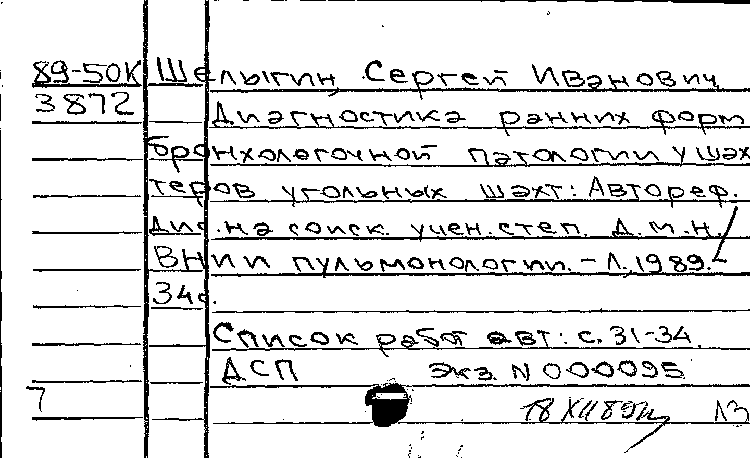 89-50К Шелыгин, Сергей Иванович
3872 Диагностика ранних форм
бронхолегочной патологии у шах
теров угольных шахт: Автореф.
дис. на соиск. учен. степ. д.м.н./
ВНИИ пульмонологии. - Л., 1989. -
34с.
Список работ авт: с. 31-34.
ДСП Экз. N 000095
7 18 XII 89г